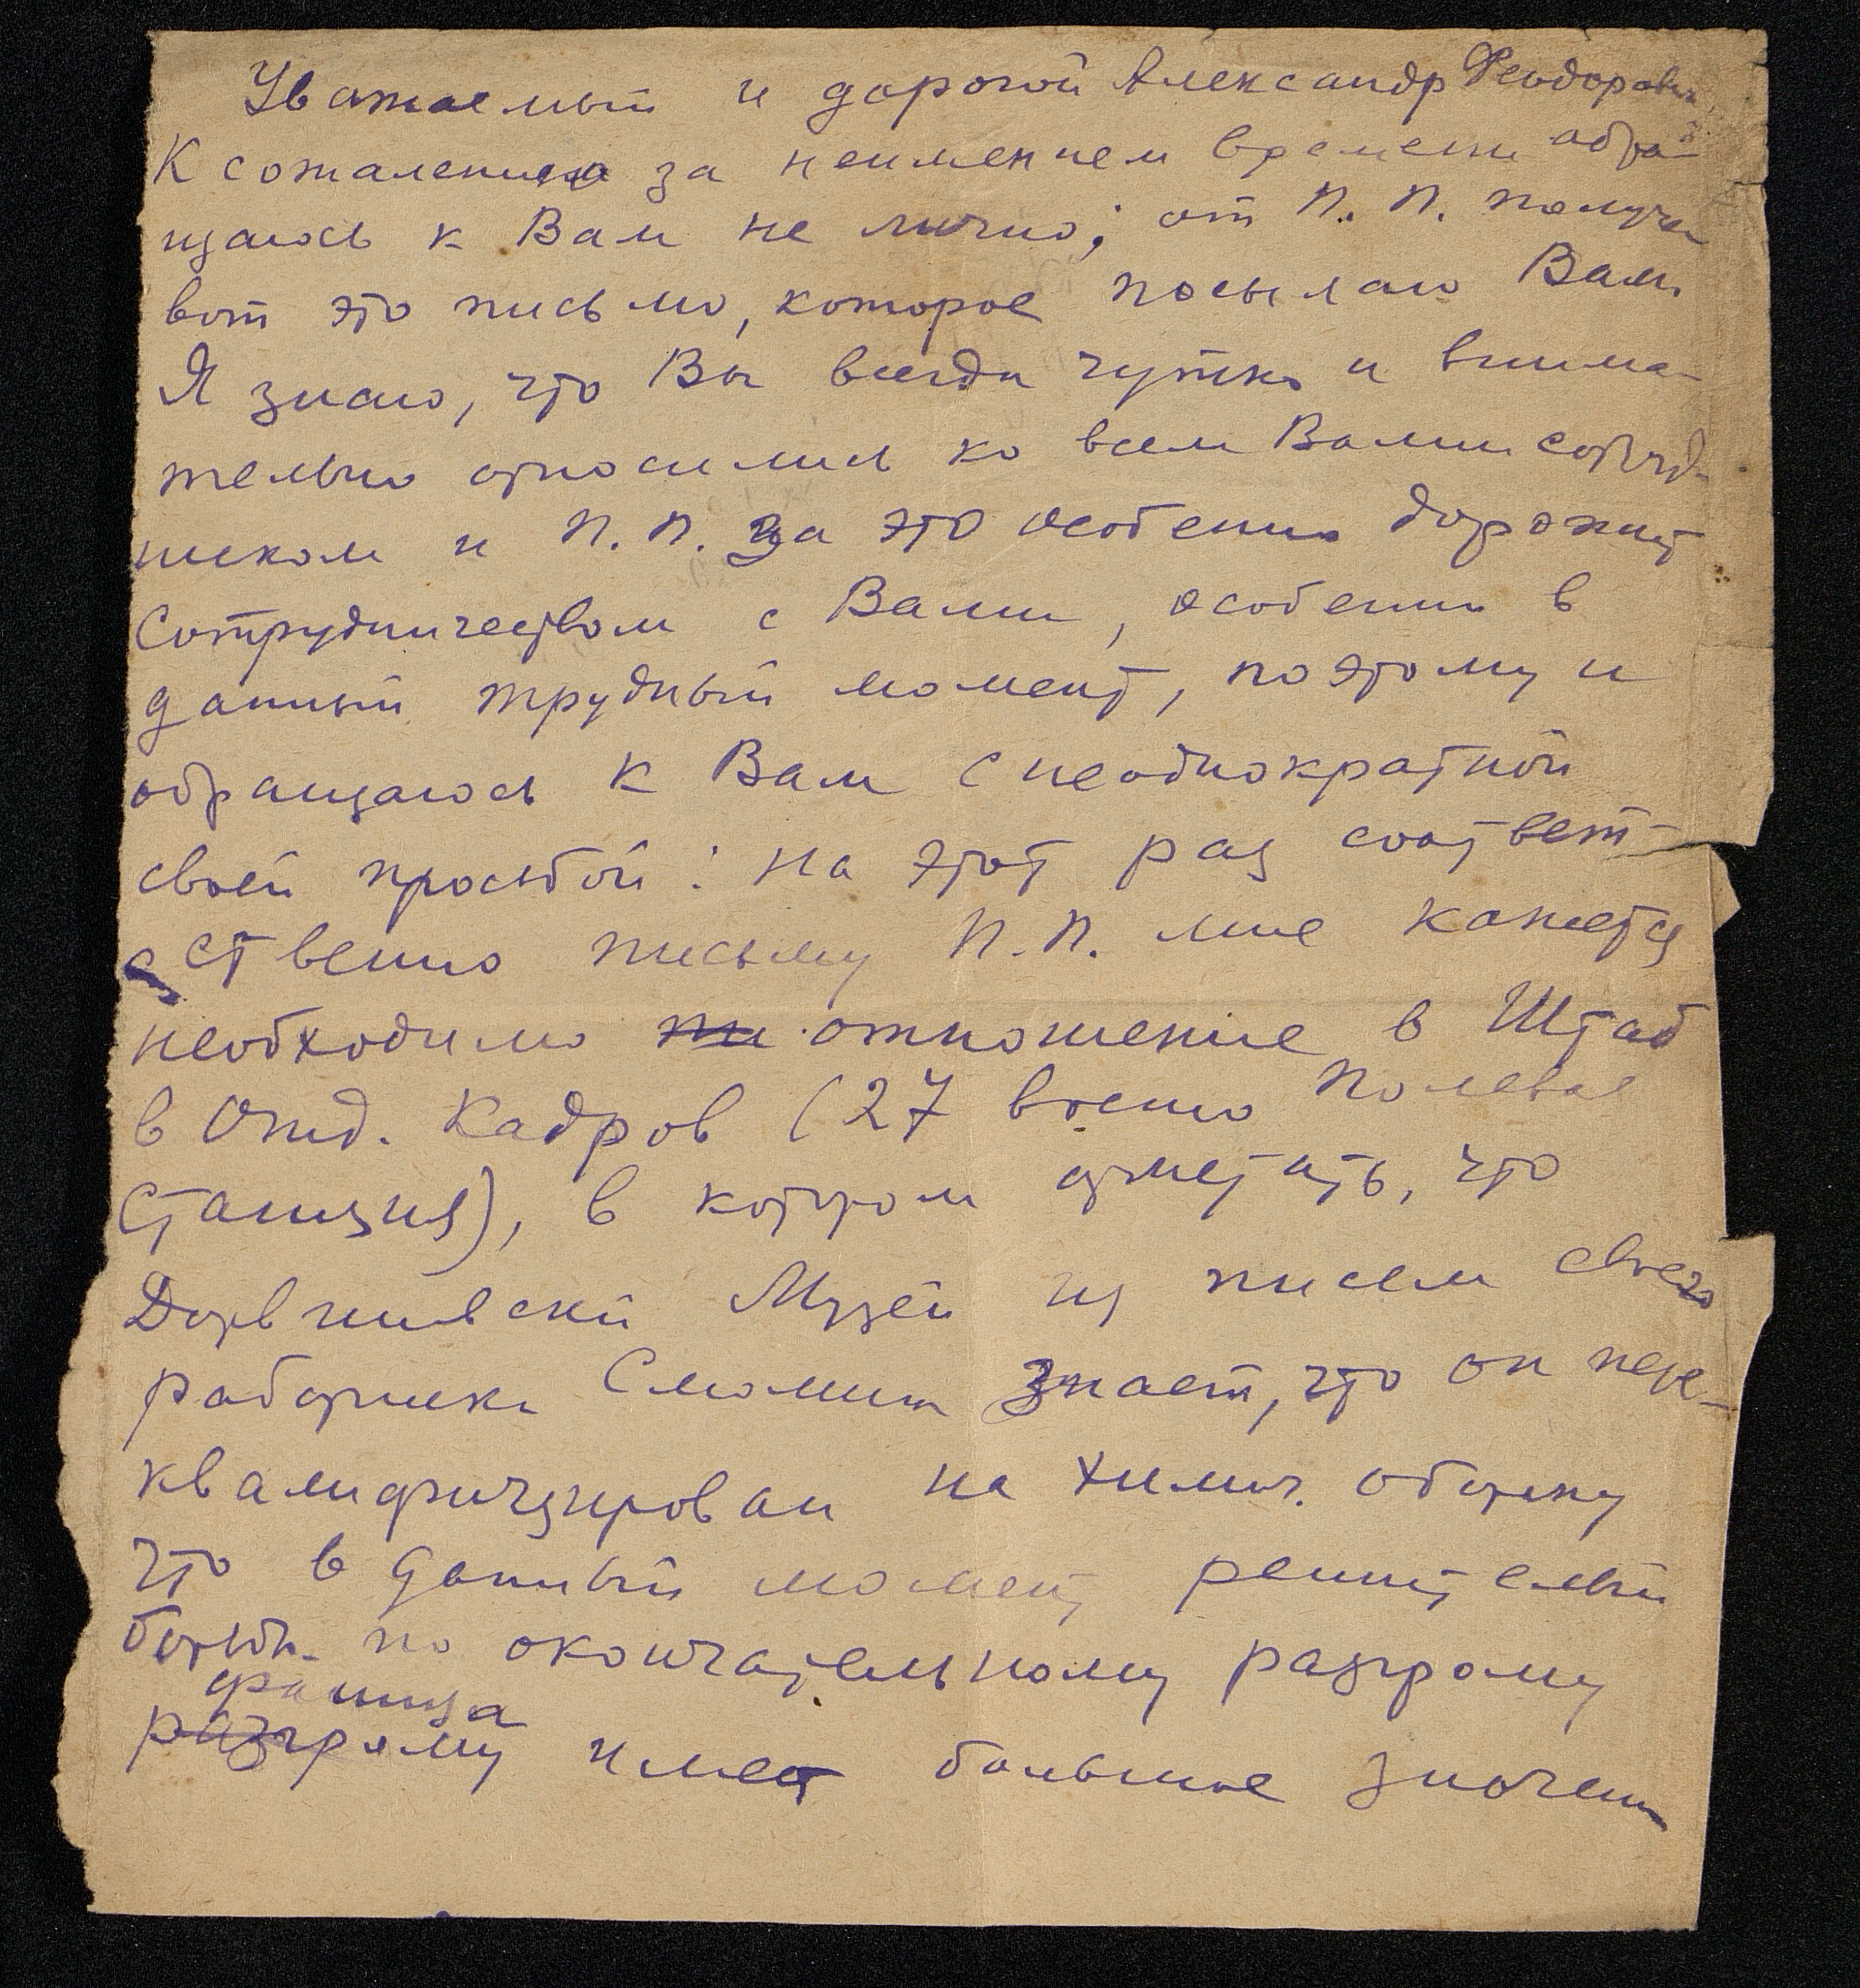 Уважаемый и дорогой Александр Феодорович,
К сожалению за неимением времени обра-
щаюсь к Вам не лично; от П. П. получен
вот это письмо, которое посылаю Вам
Я знаю, что Вы всегда чутко и внима-
тельно относились ко всем Вашим сотруд-
никам и П. П. за это особенно дорожит
Сотрудничеством с Вами, особенно в
данный трудный момент, поэтому и
обращаюсь к Вам с неоднократной
своей просьбой: на этот раз соответ-
ственно письму П. П. мне кажется
необходимо отношение в Штаб
в Отд. Кадров (27 военно полевая
Станция), в котором отметить, что
Дарвиновский Музей из писем своего
работника Смолина знает, что он пере-
квалифицирован на химич. оборону
что в данный момент решительной
борьбы по окончательному разгрому
фашизма
разгрому имеет большое значение